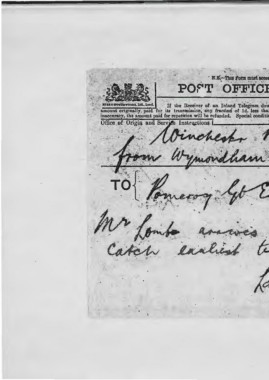 N.B.—This Form must accom
POST OFFICE
If the Receiver of an Inland Telegram dou
amount originally paid for its transmission, any fraction of 1d. less than
inaccuracy, the amount paid for repetition will be refunded. Special conditio
Office of Origin and Service Instructions
Winchester
from Wymondham
TO
Pomeroy Gt E
Mr Lomb arrives
Catch earliest t